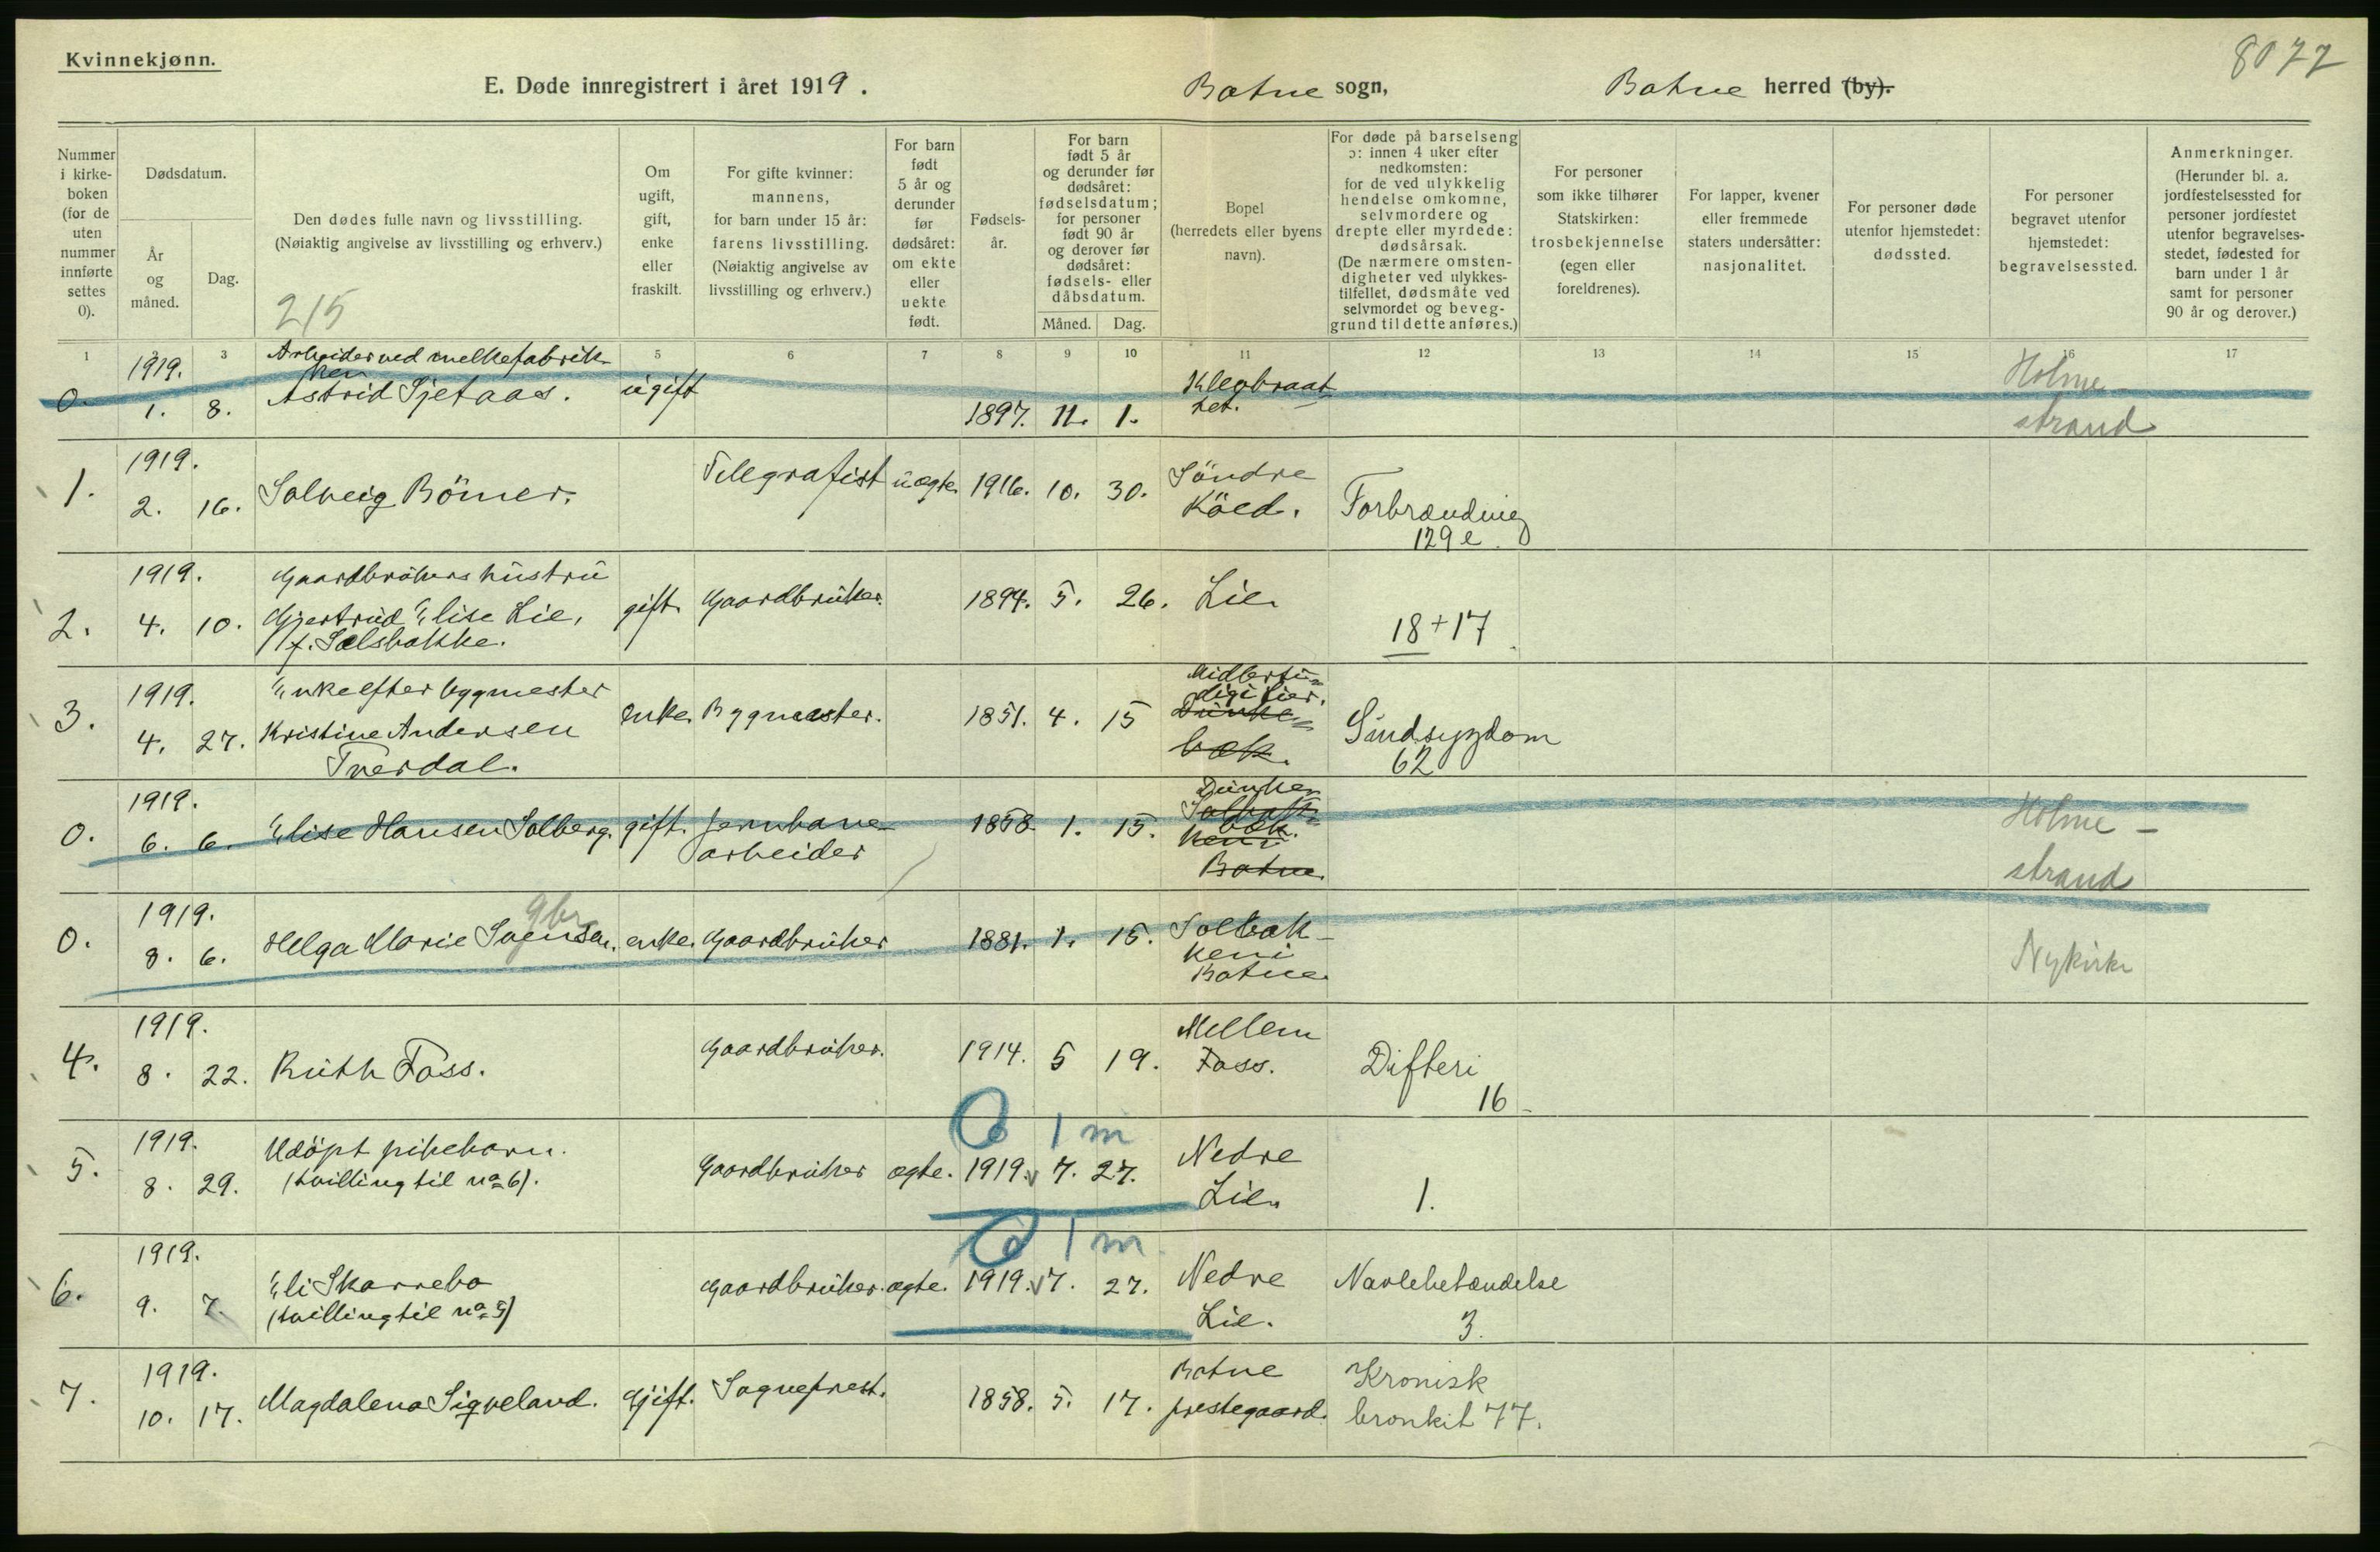 Kvinnekjønn.
8077
E. Døde innregistrert i året 1919. Botne sogn, Botne herred (by).
Nummer i kirke-boken (for de uten nummer innførte settes 0).
Dødsdatum.
År og måned.
Dag.
Den dødes fulle navn og livsstilling.
(Nøiaktig angivelse av livsstilling og erhverv.)
215
Om ugift, gift, enke eller fraskilt.
For gifte kvinner: mannens, for barn under 15 år: farens livsstilling. (Nøiaktig angivelse av livsstilling og erhverv.)
For barn født 5 år og derunder før dødsåret: om ekte eller uekte født.
Fødsels-år.
For barn født 5 år og derunder før dødsåret: fødselsdatum; for personer født 90 år og derover før dødsåret: fødsels- eller dåbsdatum.
Måned. Dag.
Bopel (herredets eller byens navn).
For døde på barselseng ɔ: innen 4 uker efter nedkomsten: for de ved ulykkelig hendelse omkomne, selvmordere og drepte eller myrdede: dødsårsak. (De nærmere omsten-digheter ved ulykkes-tilfellet, dødsmåte ved selvmordet og beveg-grund til dette anføres.)
For personer som ikke tilhører Statskirken: trosbekjennelse (egen eller foreldrenes).
For lapper, kvener eller fremmede staters undersåtter: nasjonalitet.
For personer døde utenfor hjemstedet: dødssted.
For personer begravet utenfor hjemstedet: begravelsessted.
Anmerkninger. (Herunder bl. a. jordfestelsessted for personer jordfestet utenfor begravelses-stedet, fødested for barn under 1 år samt for personer 90 år og derover.)
1 3 5 6 7 8 9 10 11 12 13 14 15 16 17
0. 1919. 1. 8. Arbeider ved melkefabrik-ken Astrid Sjetaas. ugift 1897. 11. 1. Holme-strand
1. 1919. 2. 16. Solveig Bömer. Telegrafist uægte. 1916. 10. 30. Söndre Köed. Forbrænding 129 e.
2. 1919. 4. 10. Gaardbrukers hustru Gjertrud Elise Lie, f. Solsbakke. gift. Gaardbruker. 1894. 5. 26. Lie. 18 + 17
3. 1919. 4. 27. Enke efter bygmester Kristine Andersen Tverdal. Enke. Bygmester. 1851. 4. 15 Midlertidig i Lier. Dunke-bæk. Sindsygdom 62
0. 1919. 6. 6. Elise Hansen Solberg. gift. Jernbane-arbeider 1858 1. 15. Dunkebæk. Solbak-ken i Botne. Holme-strand
0. 1919. 8. 6. Helga Marie Svensen. gbr enke. Gaardbruker 1881. 1. 15. Solbak-ken i Botne. Nykirke
4. 1919. 8. 22. Ruth Foss. Gaardbruker. 1914. 5 19. Mellem Foss. Difteri 16
5. 1919. 8. 29. Udöpt pikebarn. (tvilling til no 6). Gaardbruker ægte. 1919. 7. 27. 1 m Nedre Lie. 1.
6. 1919. 9. 7. Eli Skarrebo (tvilling til no 5) Gaardbruker. ægte. 1919. 7. 27. 1 m Nedre Lie. Navlebetændelse 3.
7. 1919. 10. 17. Magdalena Sigveland. Gjift. Sogneprest. 1858. 5. 17. Botne prestegaard. Kronisk bronkit 77.